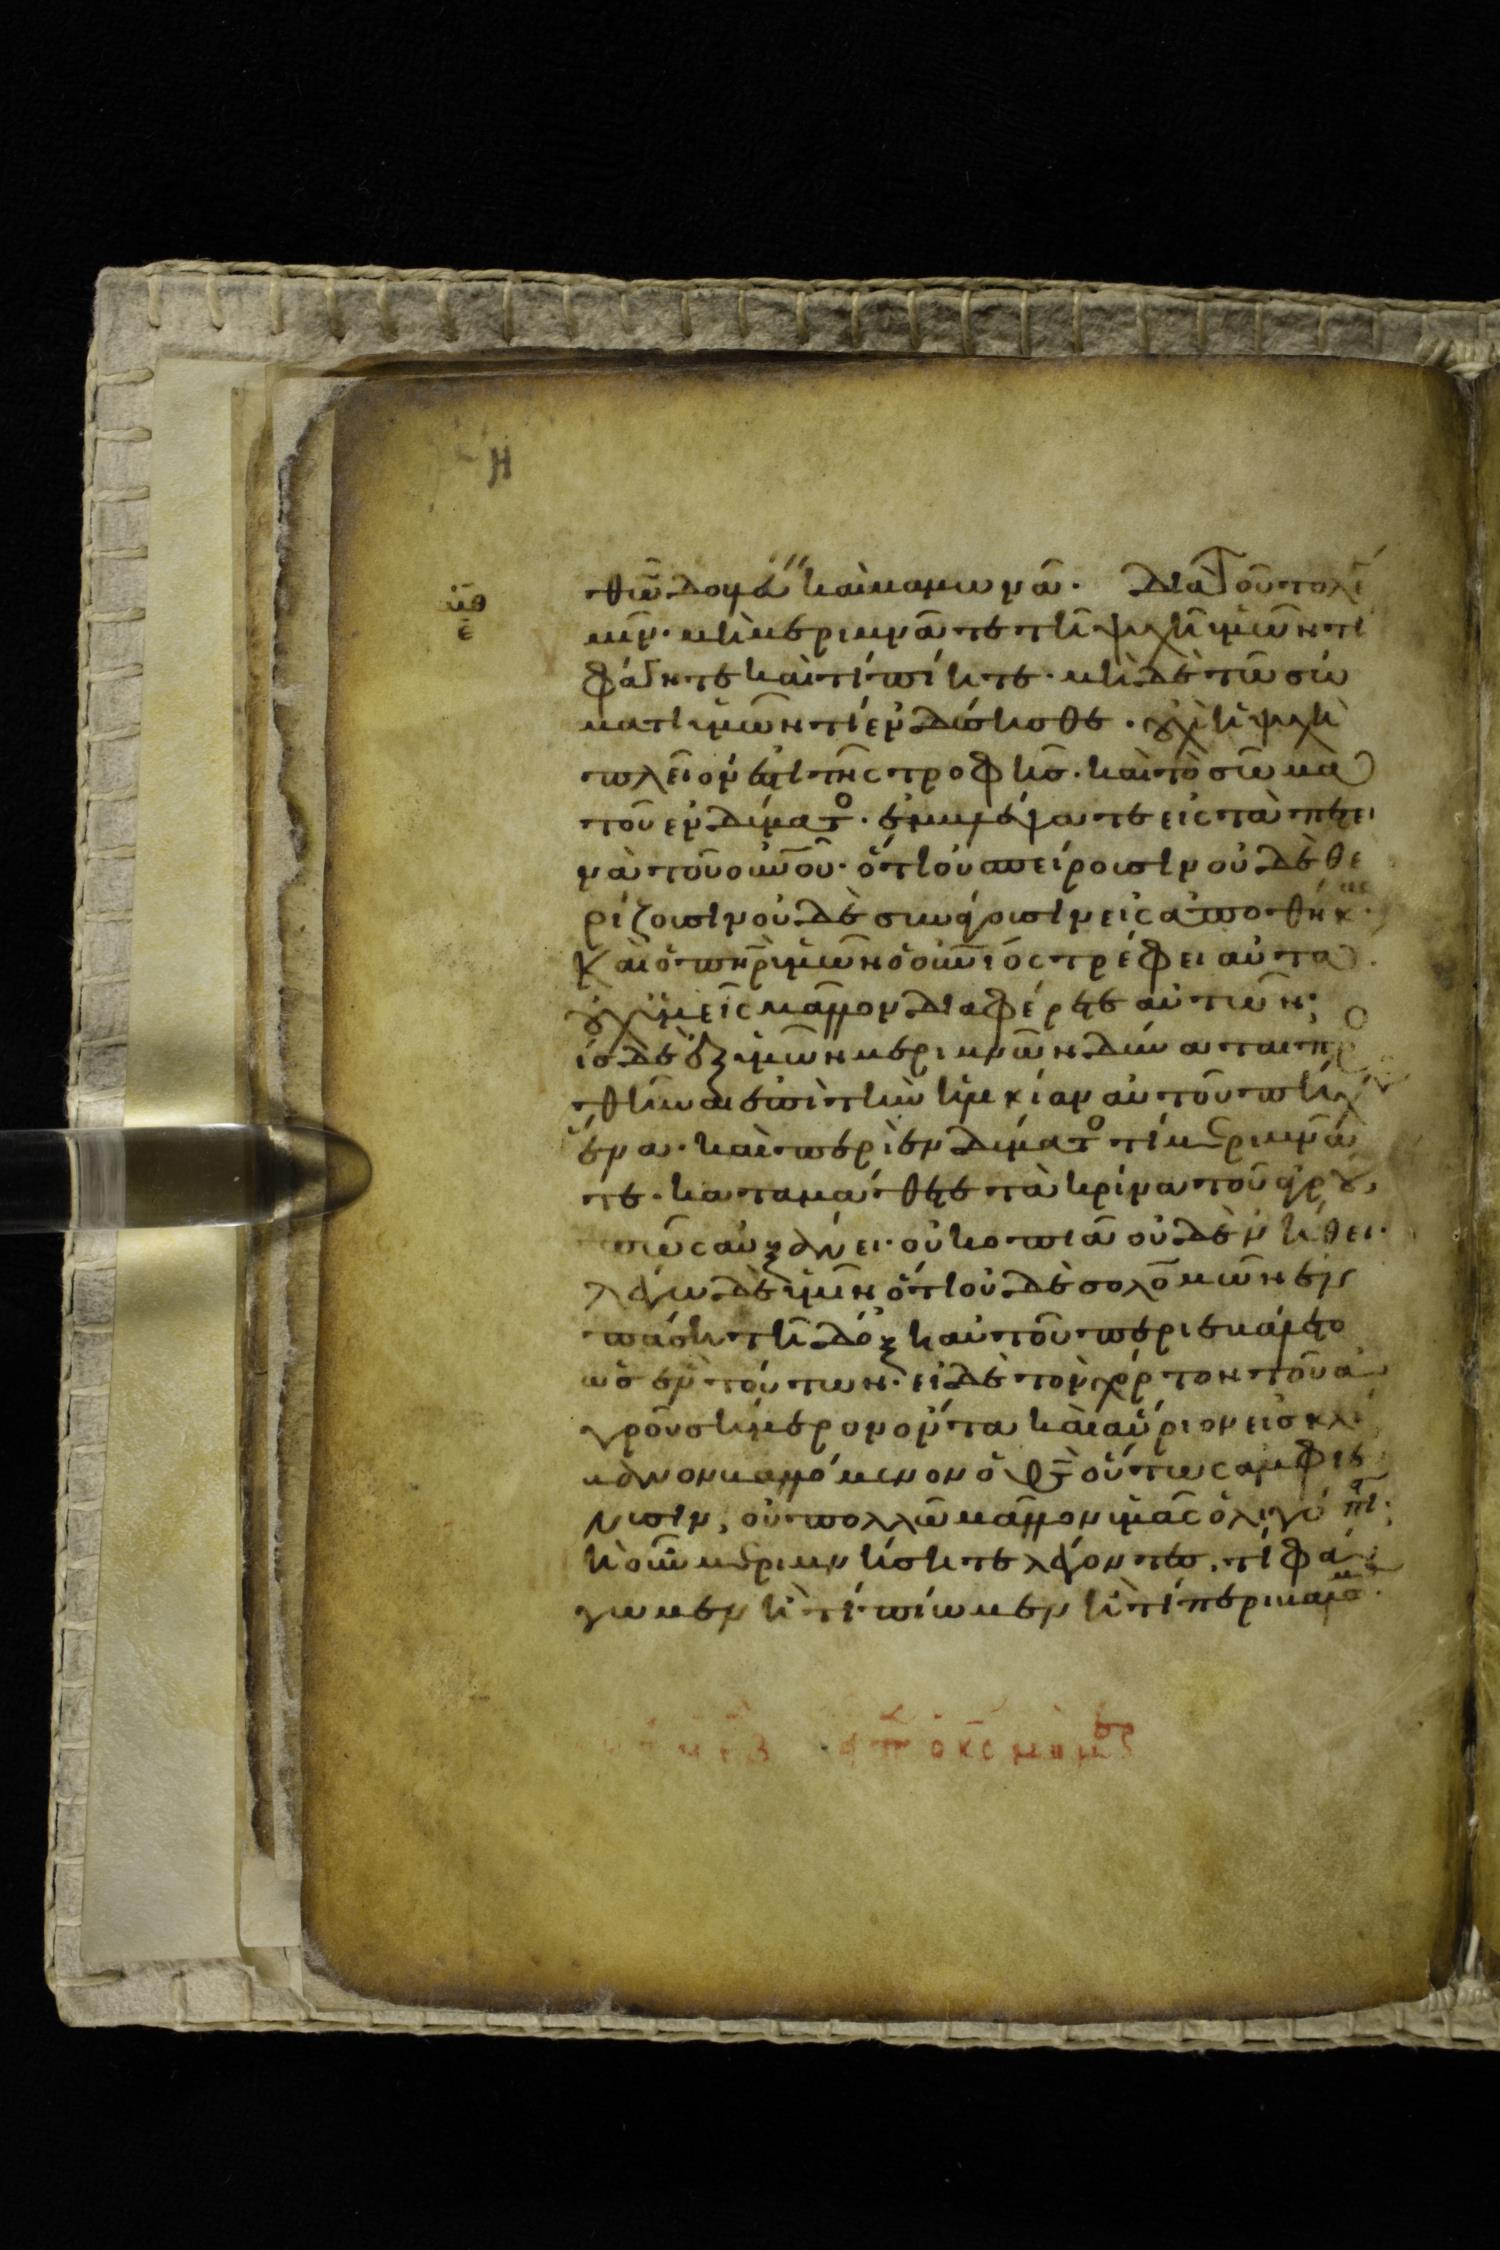 Η
μθ
ε
θῶ δουλεύ καὶ μαμωνᾶ. Διὰ τοῦτο λέ
μῖν. μὴ μεριμνᾶτε τῆ ψυχῆ ὑμῶν τί
φάγητε καὶ τί πίητε. μὴ δὲ τῶ σώ
ματι ὑμῶν τί ἐνδύσησθε. οὐχὶ ἡ ψυχὴ
πλεῖόν ἐστι τῆς τροφῆς. καὶ τὸ σῶμα
τοῦ ἐνδύματο. ἐμβλέψατε εἰς τὰ πετει
νὰ τοῦ οὐνοῦ. ὅτι οὐ σπείρουσιν οὐδὲ θε
ρίζουσιν οὐδὲ συνάγουσιν εἰς ἀποθήκας.
καὶ ὁ πηρ ὑμῶν ὁ οὐνιος τρέφει αὐτά.
οὐχ ὑμεῖς μᾶλλον διαφέρετε αὐτῶν;
τίς δὲ ἐξ ὑμῶν μεριμνῶν δύναται προ
σθῆναι ἐπὶ τὴν ἡλικίαν αὐτοῦ πῆχυ
ἕνα. καὶ περὶ ἐνδύματο τί μεριμνᾶ
τε. καταμάθετε τὰ κρίνα τοῦ ἀγροῦ
πῶς αὐξάνει. οὐ κοπιᾶ οὐδὲ νήθει.
λέγω δὲ ὑμῖν ὅτι οὐδὲ σολομῶν ἐν
πάση τῆ δόξη αὐτοῦ περιεβάλετο
ὡς ἓν τούτων. εἰ δὲ τὸν χόρτον τοῦ ἀ
γροῦ σήμερον ὄντα καὶ αὔριον εἰς κλί
βανον βαλλόμενον ὁ θς οὕτως ἀμφιέ
νυσιν, οὐ πολλῶ μᾶλλον ὑμᾶς ὀλιγόπι.
μὴ οὖν μεριμνήσητε λέγοντες. τί φά
γωμεν ἢ τί πίωμεν ἢ τί περιβαλώμε.